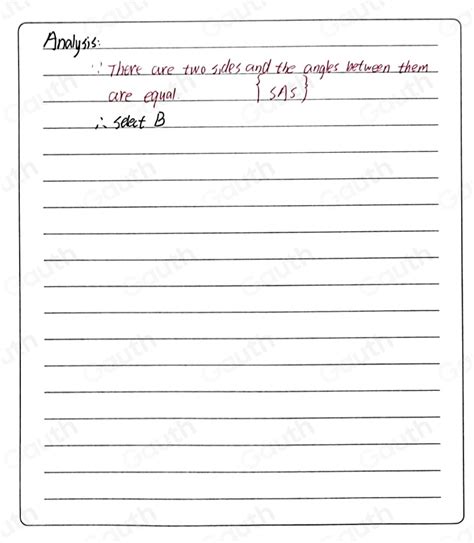 Analysis:
∵ There are two sides and the angles between them
are equal. {SAS}
∴ select B